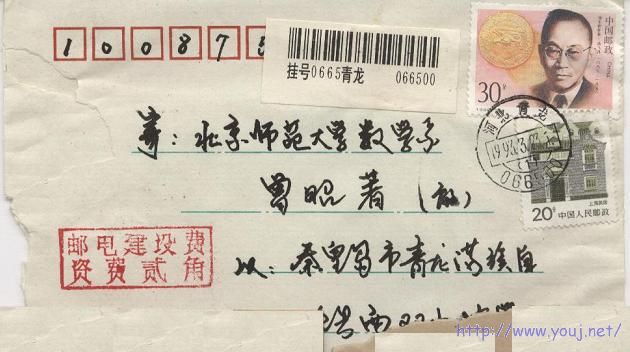 100875
挂号0665青龙 066500
中国邮政
30分
寄:北京师范大学数学系
曾昭著(收)
河北青龙
1993.3
20分 中国人民邮政
上海民居
邮电建设费
资费贰角
从:秦皇岛市青龙满族自
http://www.youj.net/